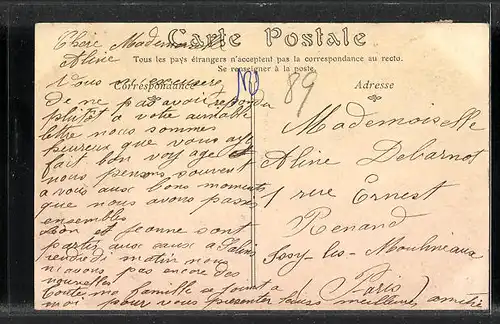 Carte Postale
Tous les pays étrangers n'acceptent pas la correspondance au recto.
Se renseigner à la poste.
Correspondance
Adresse
89
Chère Mademoiselle
Aline
Vous m'excuserez
de ne pas avoir repondu
plutôt a votre aimable
lettre nous sommes
heureux que vous ayez
fait bon voyage et
nous pensons souvent
a vous aux bons moments
que nous avons passés
ensembles
Léon et Jeanne sont
partis aux eaux a Salins
vendredi matin nous
n'avons pas encore des
nouvelles
toutes ma famille se joint a
moi pour vous présenter leurs meilleures amitié
Mademoiselle
Aline Debarnot
1 rue Ernest
Renand
Issy-les-Moulineaux
(Paris)